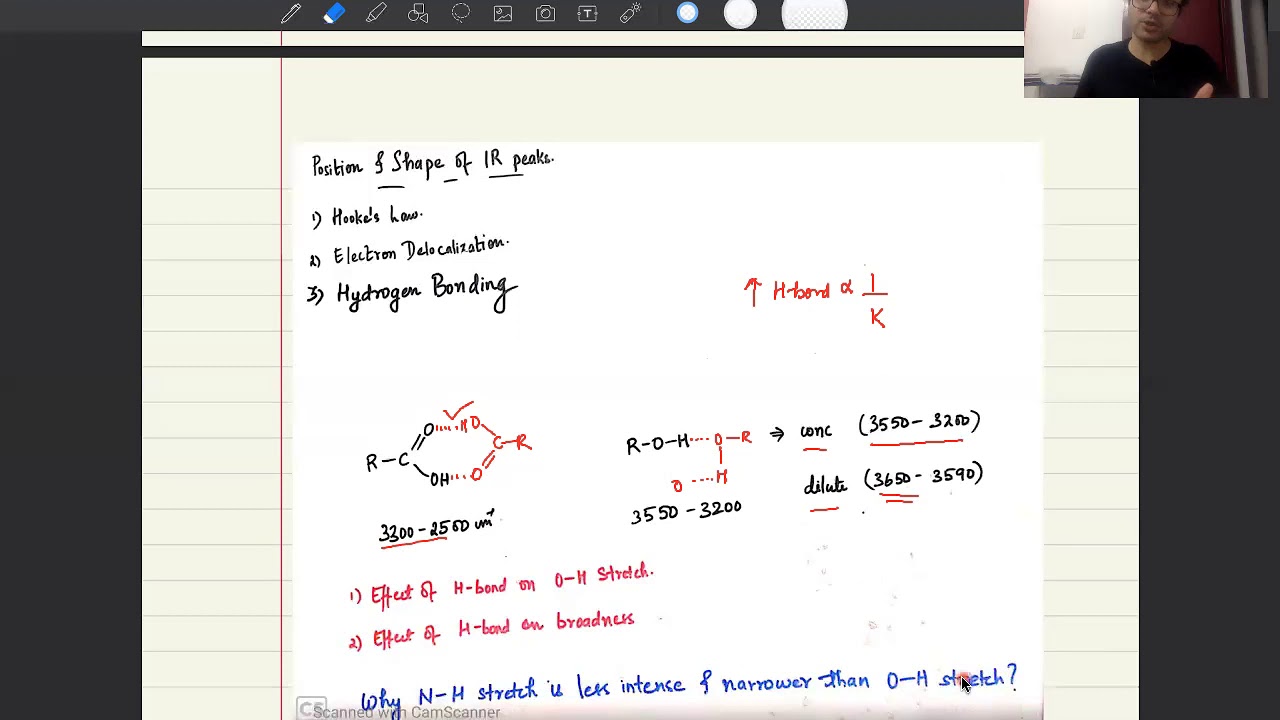 Position & Shape of IR peaks.
1) Hooke's Law.
2) Electron Delocalization.
3) Hydrogen Bonding
↑ H-bond ∝ 1/K
O H O
R-C C-R
OH O
3300-2500 cm⁻¹
R-O-H O-R
O H
3550-3200
⇒ conc (3550-3200)
dilute (3650-3590)
1) Effect of H-bond on O-H Stretch.
2) Effect of H-bond on broadness
Why N-H stretch is less intense & narrower than O-H stretch?
CS Scanned with CamScanner